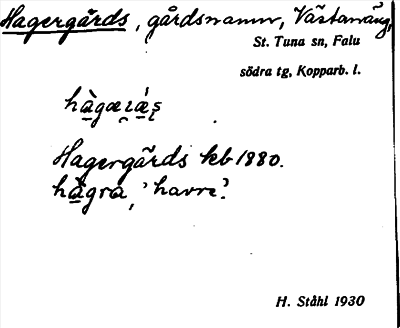 Hagergårds, gårdsnamn, Västanväng,
St. Tuna sn, Falu
södra tg, Kopparb. l.
Hagergårds kb 1880.
hågra, 'havre'.
H. Ståhl 1930